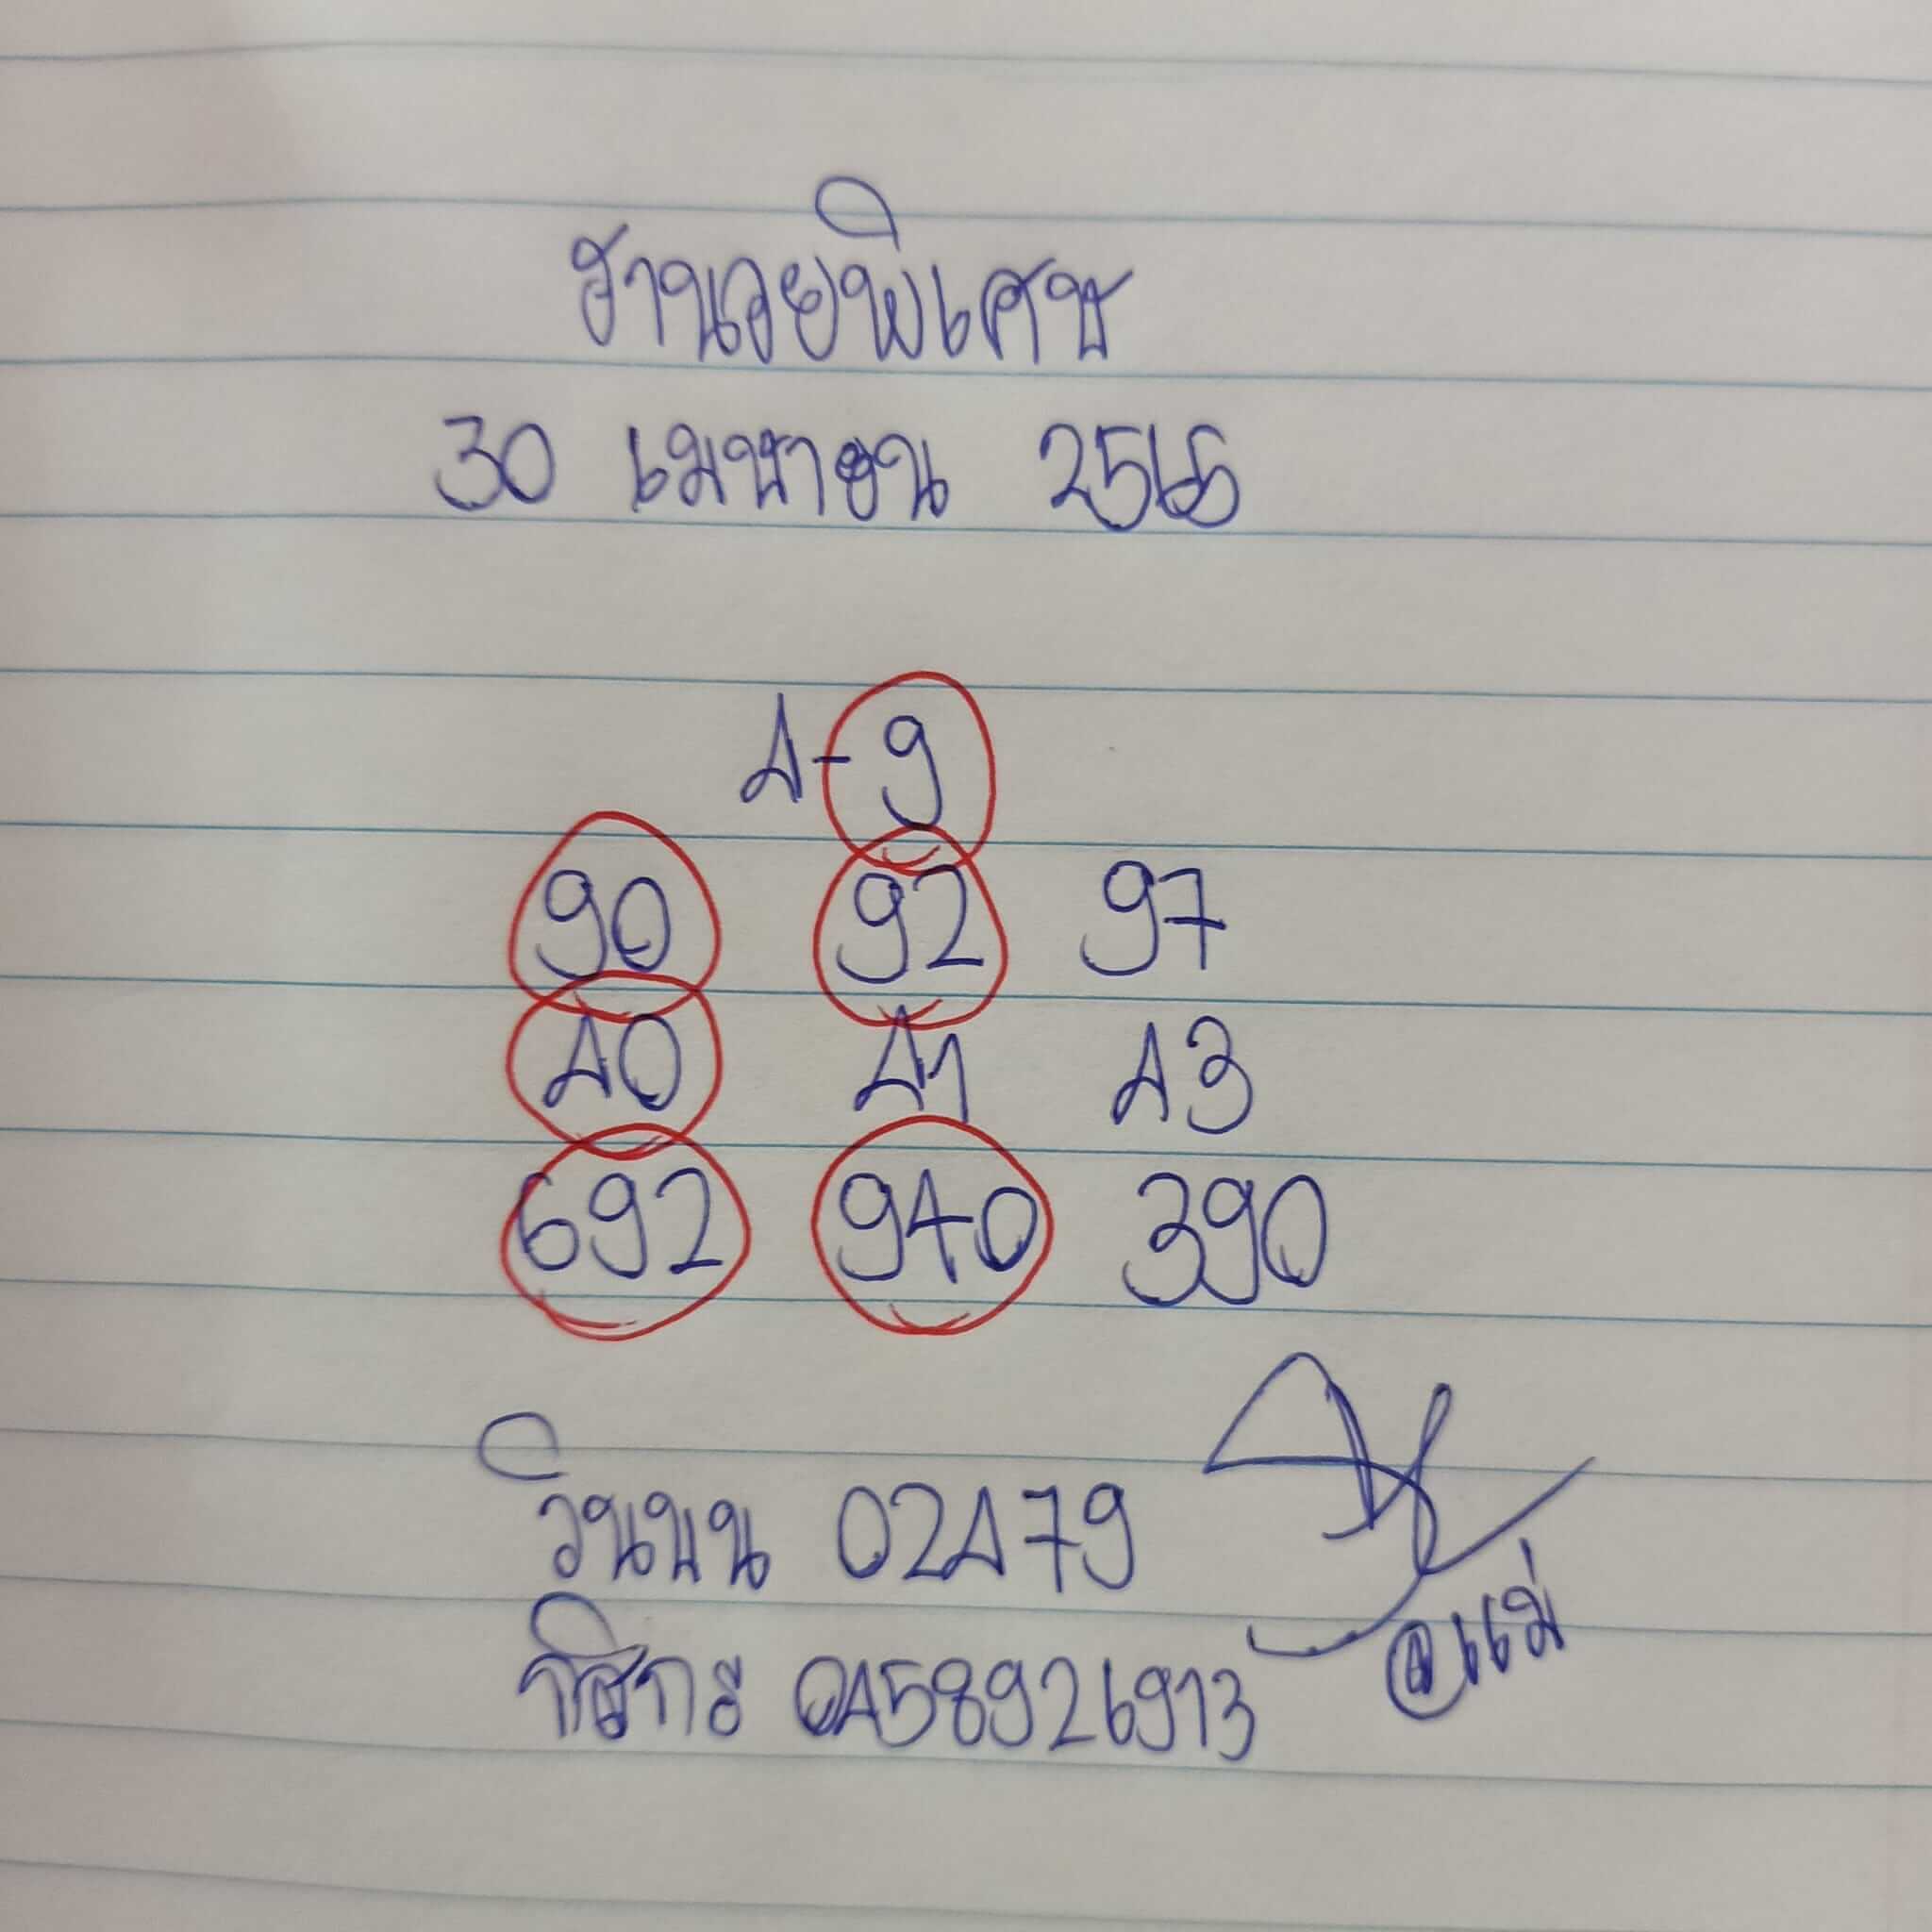 ฮานอยพิเศษ
30 เมษายน 2566
4-9
90 92 97
40 41 43
692 940 390
วินบน 02479
@แม่